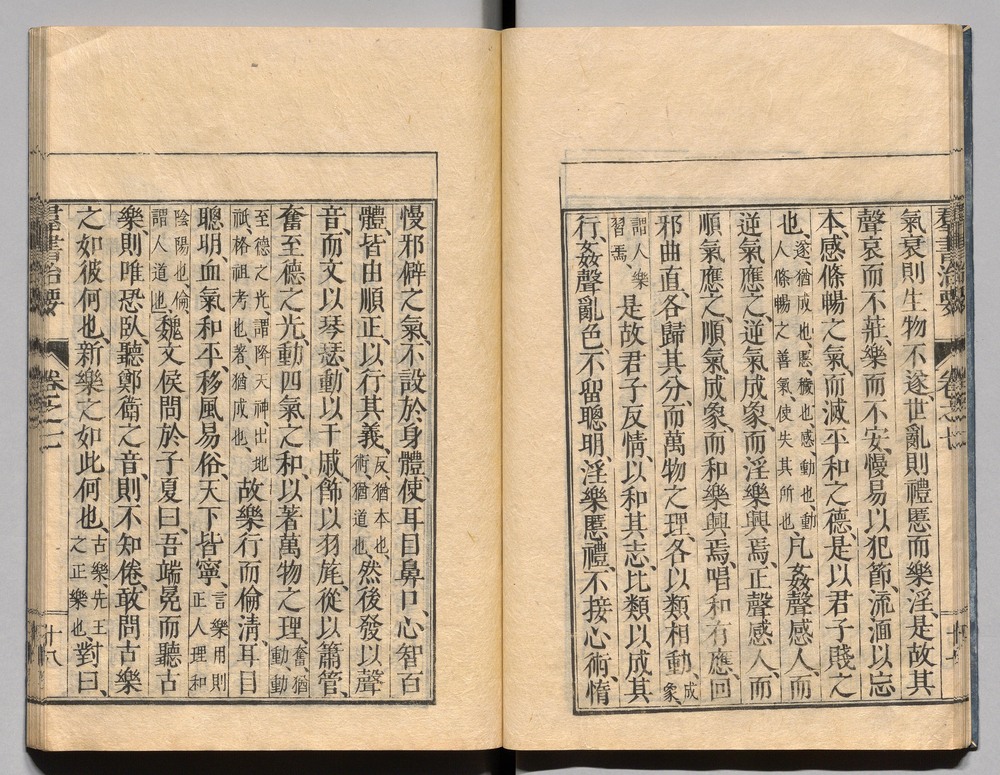 羣書治要 卷之七 十七
氣衰則生物不遂、世亂則禮慝而樂淫、是故其
聲哀而不莊、樂而不安、慢易以犯節、流湎以忘
本、感條暢之氣、而滅平和之德、是以君子賤之
也、遂、猶成也、慝、穢也、感、動也、動人條暢之善氣、使失其所也、凡姦聲感人、而
逆氣應之、逆氣成象、而淫樂興焉、正聲感人、而
順氣應之、順氣成象、而和樂興焉、唱和有應、回
邪曲直、各歸其分、而萬物之理、各以類相動、成象、
謂人樂習焉、是故君子反情、以和其志、比類以成其
行、姦聲亂色、不留聰明、淫樂慝禮、不接心術、惰
慢邪僻之氣、不設於身體、使耳目鼻口、心智百
體、皆由順正、以行其義、反猶本也、術、猶道也、然後發以聲
音、而文以琴瑟、動以干戚、飾以羽旄、從以簫管、
奮至德之光、動四氣之和、以著萬物之理、奮、猶動、動
至德之光、謂降天神、出地祇、格祖考也、著、猶成也、故樂行而倫淸、耳目
聰明、血氣和平、移風易俗、天下皆寧、言樂用則正人理和
陰陽也、倫、謂人道也、魏文侯問於子夏曰、吾端冕而聽古
樂、則唯恐臥、聽鄭衛之音、則不知倦、敢問古樂
之如彼何也、新樂之如此何也、古樂、先王之正樂也、對曰、
羣書治要 卷之七 十八